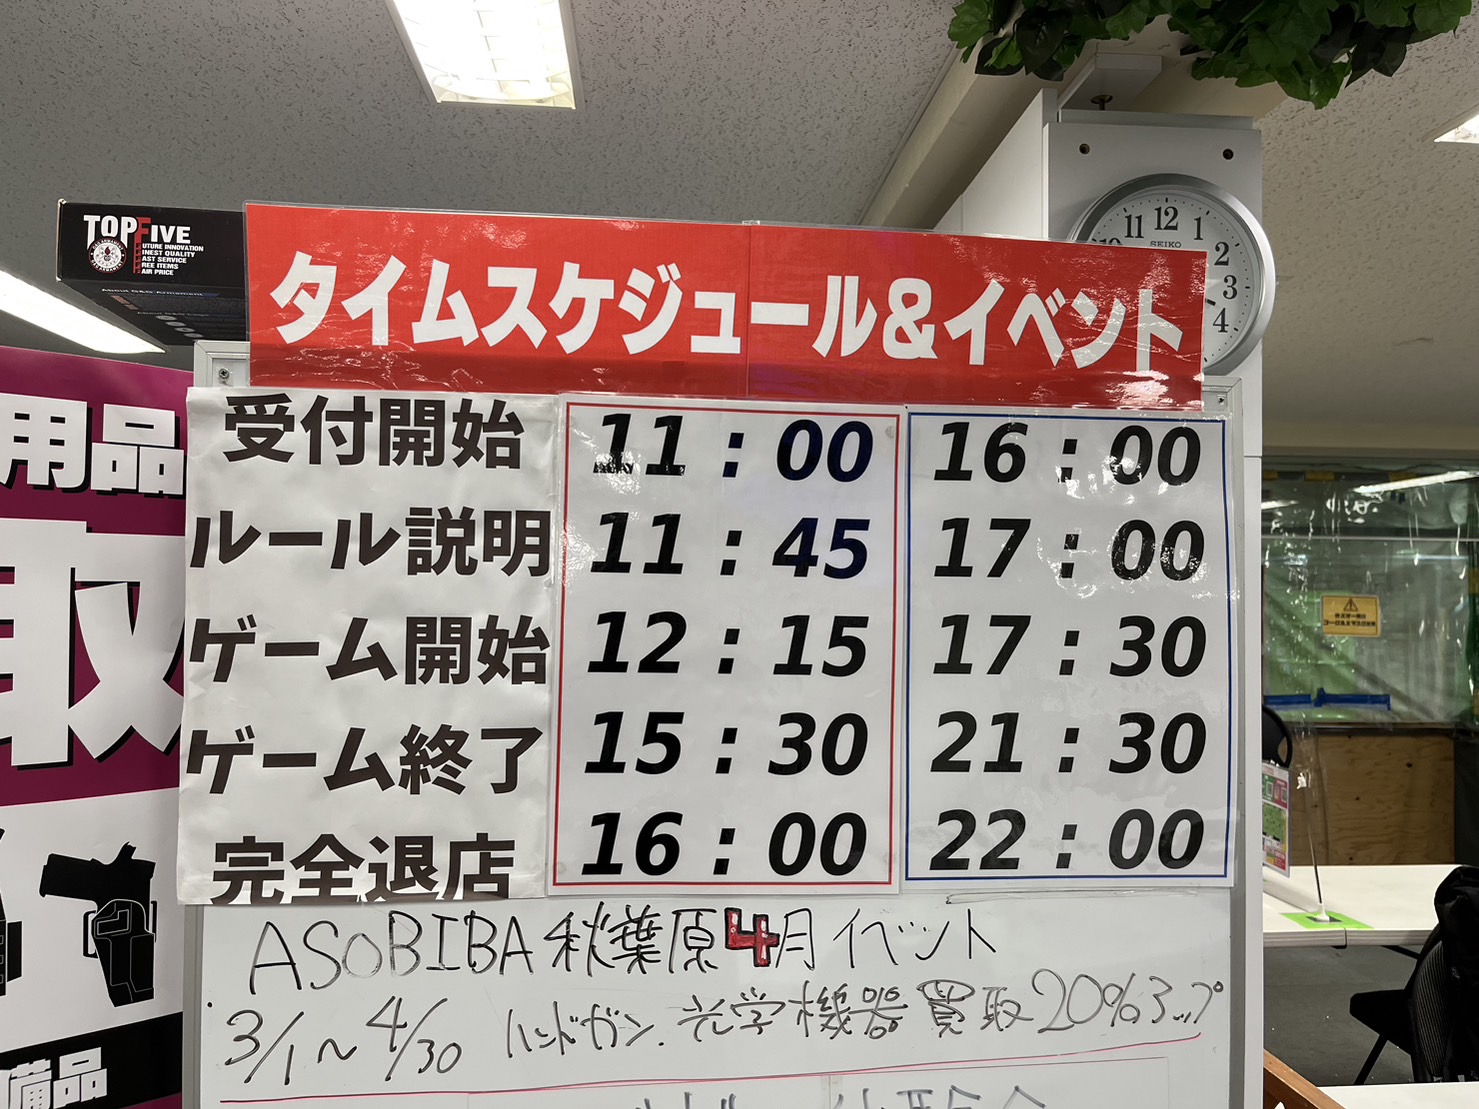 TOPFIVE
FUTURE INNOVATION
FINEST QUALITY
FAST SERVICE
FREE ITEMS
FAIR PRICE
About G&G Armament
11 12 1
SEIKO
2
3
4
タイムスケジュール&イベント
用品
取
備品
受付開始 11:00 16:00
ルール説明 11:45 17:00
ゲーム開始 12:15 17:30
ゲーム終了 15:30 21:30
完全退店 16:00 22:00
ASOBIBA秋葉原4月イベント
3/1～4/30 ハンドガン.光学機器買取20%アップ